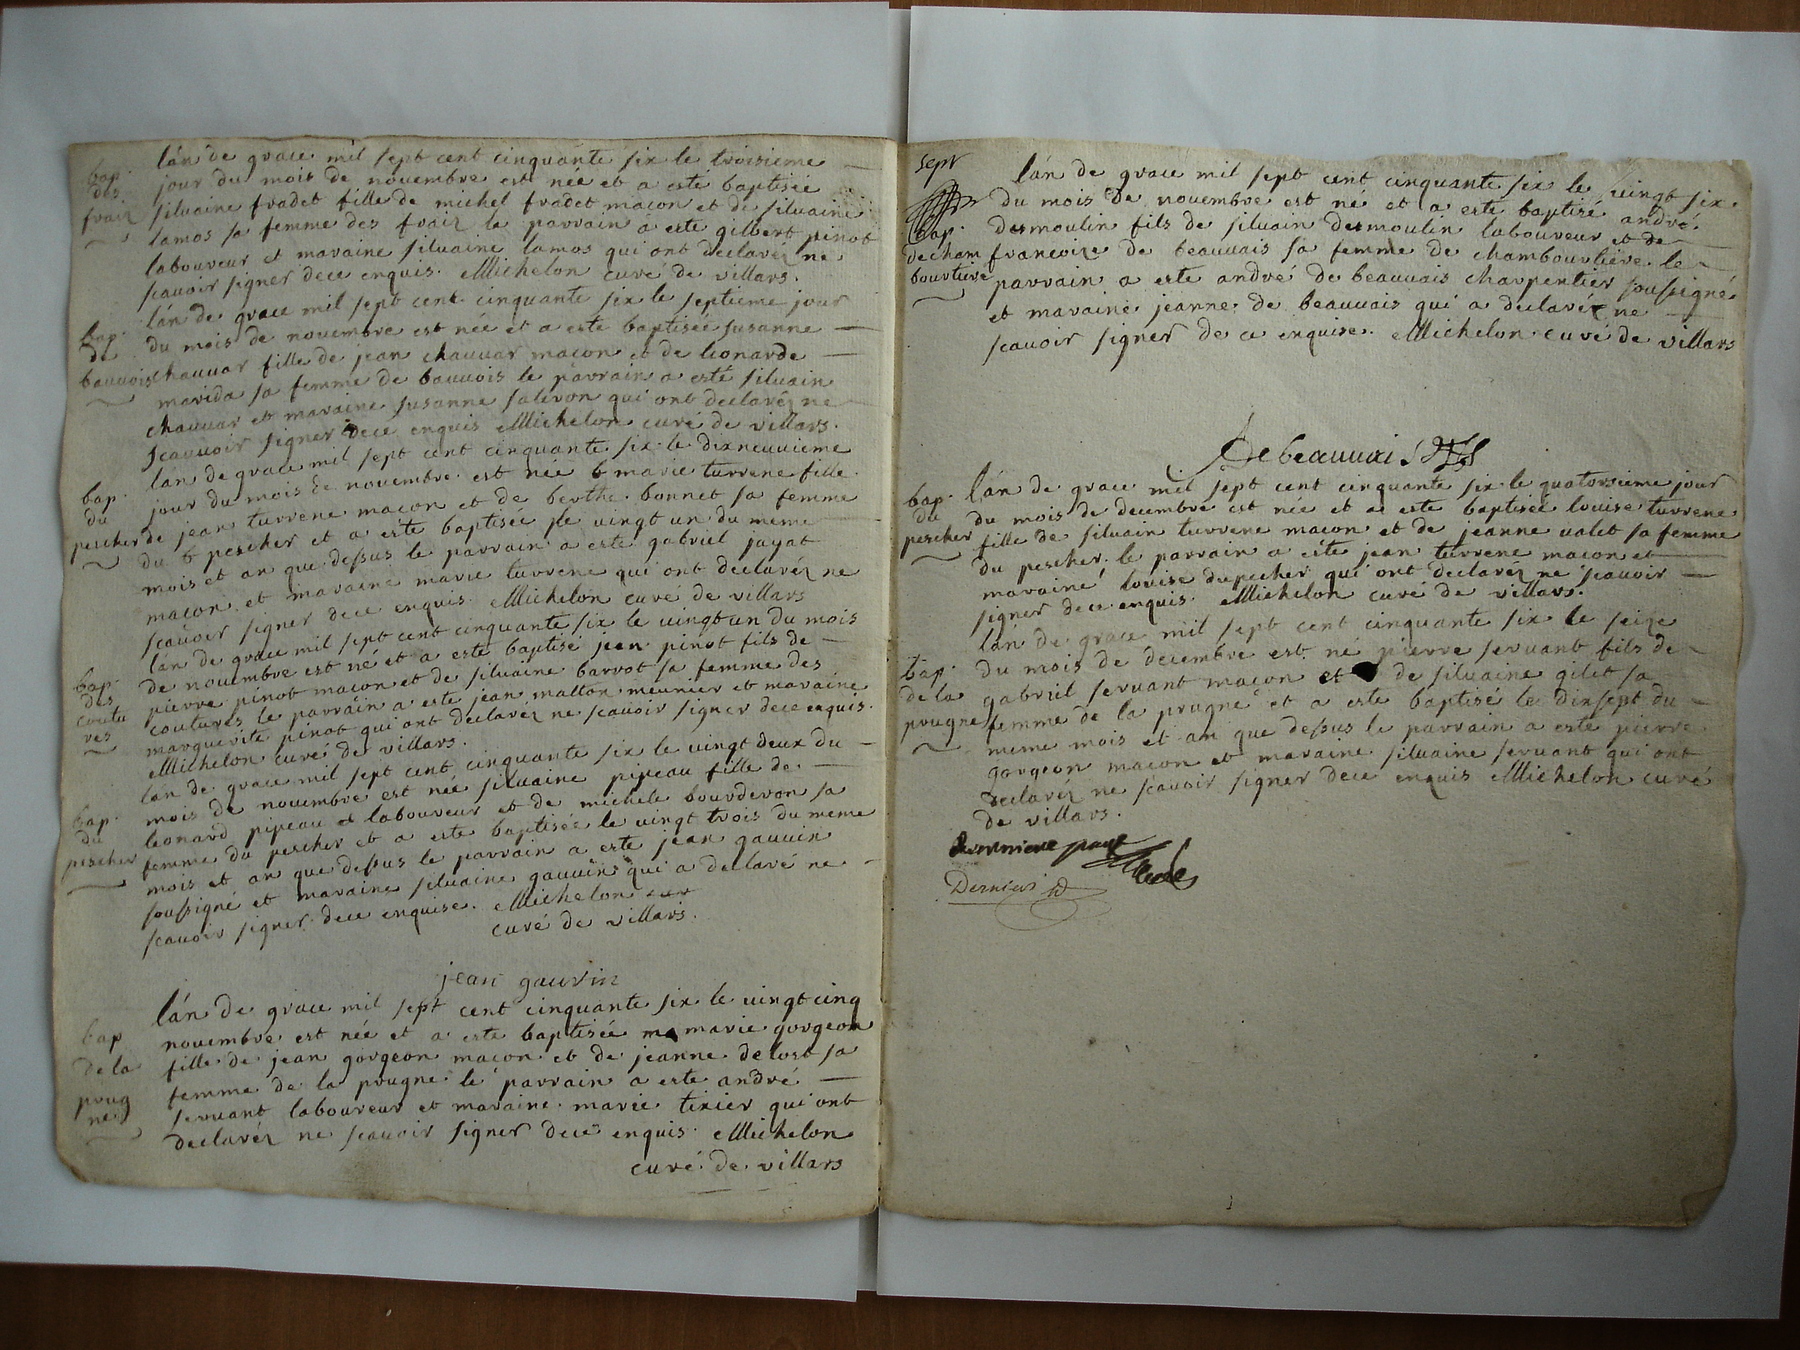 bap.
des
fraiz
lán de grace mil sept cent cinquante six le troisieme
jour du mois de novembre est née et a esté baptisée
siluaine fradet fille de michel fradet macon et de siluaine
lamos sa femme des fraiz le parrain a este gilbert pinot
laboureur et maraine siluaine lamos qui ont declarez ne
scauoir signer dece enquis. Michelon curé de villars.
bap.
de
bauuois
lán de grace mil sept cent cinquante six le septieme jour
du mois de novembre est née et a este baptisée susanne
chauuar fille de jean chauuar macon et de leonarde
marida sa femme de bauuois le parrain a esté siluain
chauuar et maraine susanne saleron qui ont declaréz ne
scauuoir signer dece enquis Michelon curé de villars.
bap.
du
pescher
lán de grace mil sept cent cinquante six le dixneuuieme
jour du mois de novembre est née b marie turrene fille
de jean turrene macon et de berthe bonnet sa femme
du b pescher et a este baptisée ple vingt un du meme
mois et an que dessus le parrain a este gabriel jayat
macon et maraine marie turrene qui ont declaréz ne
scauoir signer dece enquis Michelon curé de villars
bap.
des
coutu
res
lán de grace mil sept cent cinquante six le vingt un du mois
de novembre est né et a este baptisé jean pinot fils de
pierre pinot macon et de siluaine barrot sa femme des
coutures le parrain a este jean matton meunier et maraine
marguerite pinot qui ont declaréz ne scauoir signer dece enquis.
Michelon curé de villars.
bap.
du
pescher
lán de grace mil sept cent cinquante six le vingt deux du
mois de novembre est née siluaine pipeau fille de
leonard pipeau et laboureur et de michele bourderon sa
femme du pescher et a este baptisée le vingt trois du meme
mois et an que dessus le parrain a este jean gauuin
soussigné et maraine siluaine gauuin qui a declaré ne
scauoir signer dece enquise. Michelon cur
curé de villars.
jean gauvin
bap
de la
prug
ne
lán de grace mil sept cent cinquante six le vingt cinq
nouembre est née et a este baptisée ma marie gorgeon
fille de jean gorgeon macon et de jeanne delost sa
femme de la prugne le parrain a este andré
seruant laboureur et maraine marie tixier qui ont
declaréz ne scauoir signer dece enquis Michelon
curé de villars
sept
bap.
de cham
bourliere
lán de grace mil sept cent cinquante six le vingt six
du mois de novembre est né et a este baptisé andré
desmoulin fils de siluain desmoulin laboureur et de
francoize de beauuais sa femme de chambourliere le
parrain a este andré de beauuais charpentier soussigné
et maraine jeanne de beauuais qui a declaréz ne
scauoir signer de ce enquise. Michelon curé de villars
De beauuais
bap.
du
pescher
lán de grace mil sept cent cinquante six le quatorsieme jour
du mois de decembre est née et a este baptisée louise turrene
fille de siluain turrene macon et de jeanne valet sa femme
du pescher le parrain a este jean turrene macon et
maraine louise dupecher qui ont declaréz ne scauoir
signer dece enquis. Michelon curé de villars.
bap.
de la
prugne
lán de grace mil sept cent cinquante six le seize
du mois de decembre est né pierre seruant fils de
gabriel seruant macon et de siluaine gilet sa
femme de la prugne et a este baptisé le dixsept du
meme mois et an que dessus le parrain a este pierre
gorgeon macon et maraine siluaine seruant qui ont
declarez ne scauoir signer dece enquis Michelon curé
de villars.
derniere page